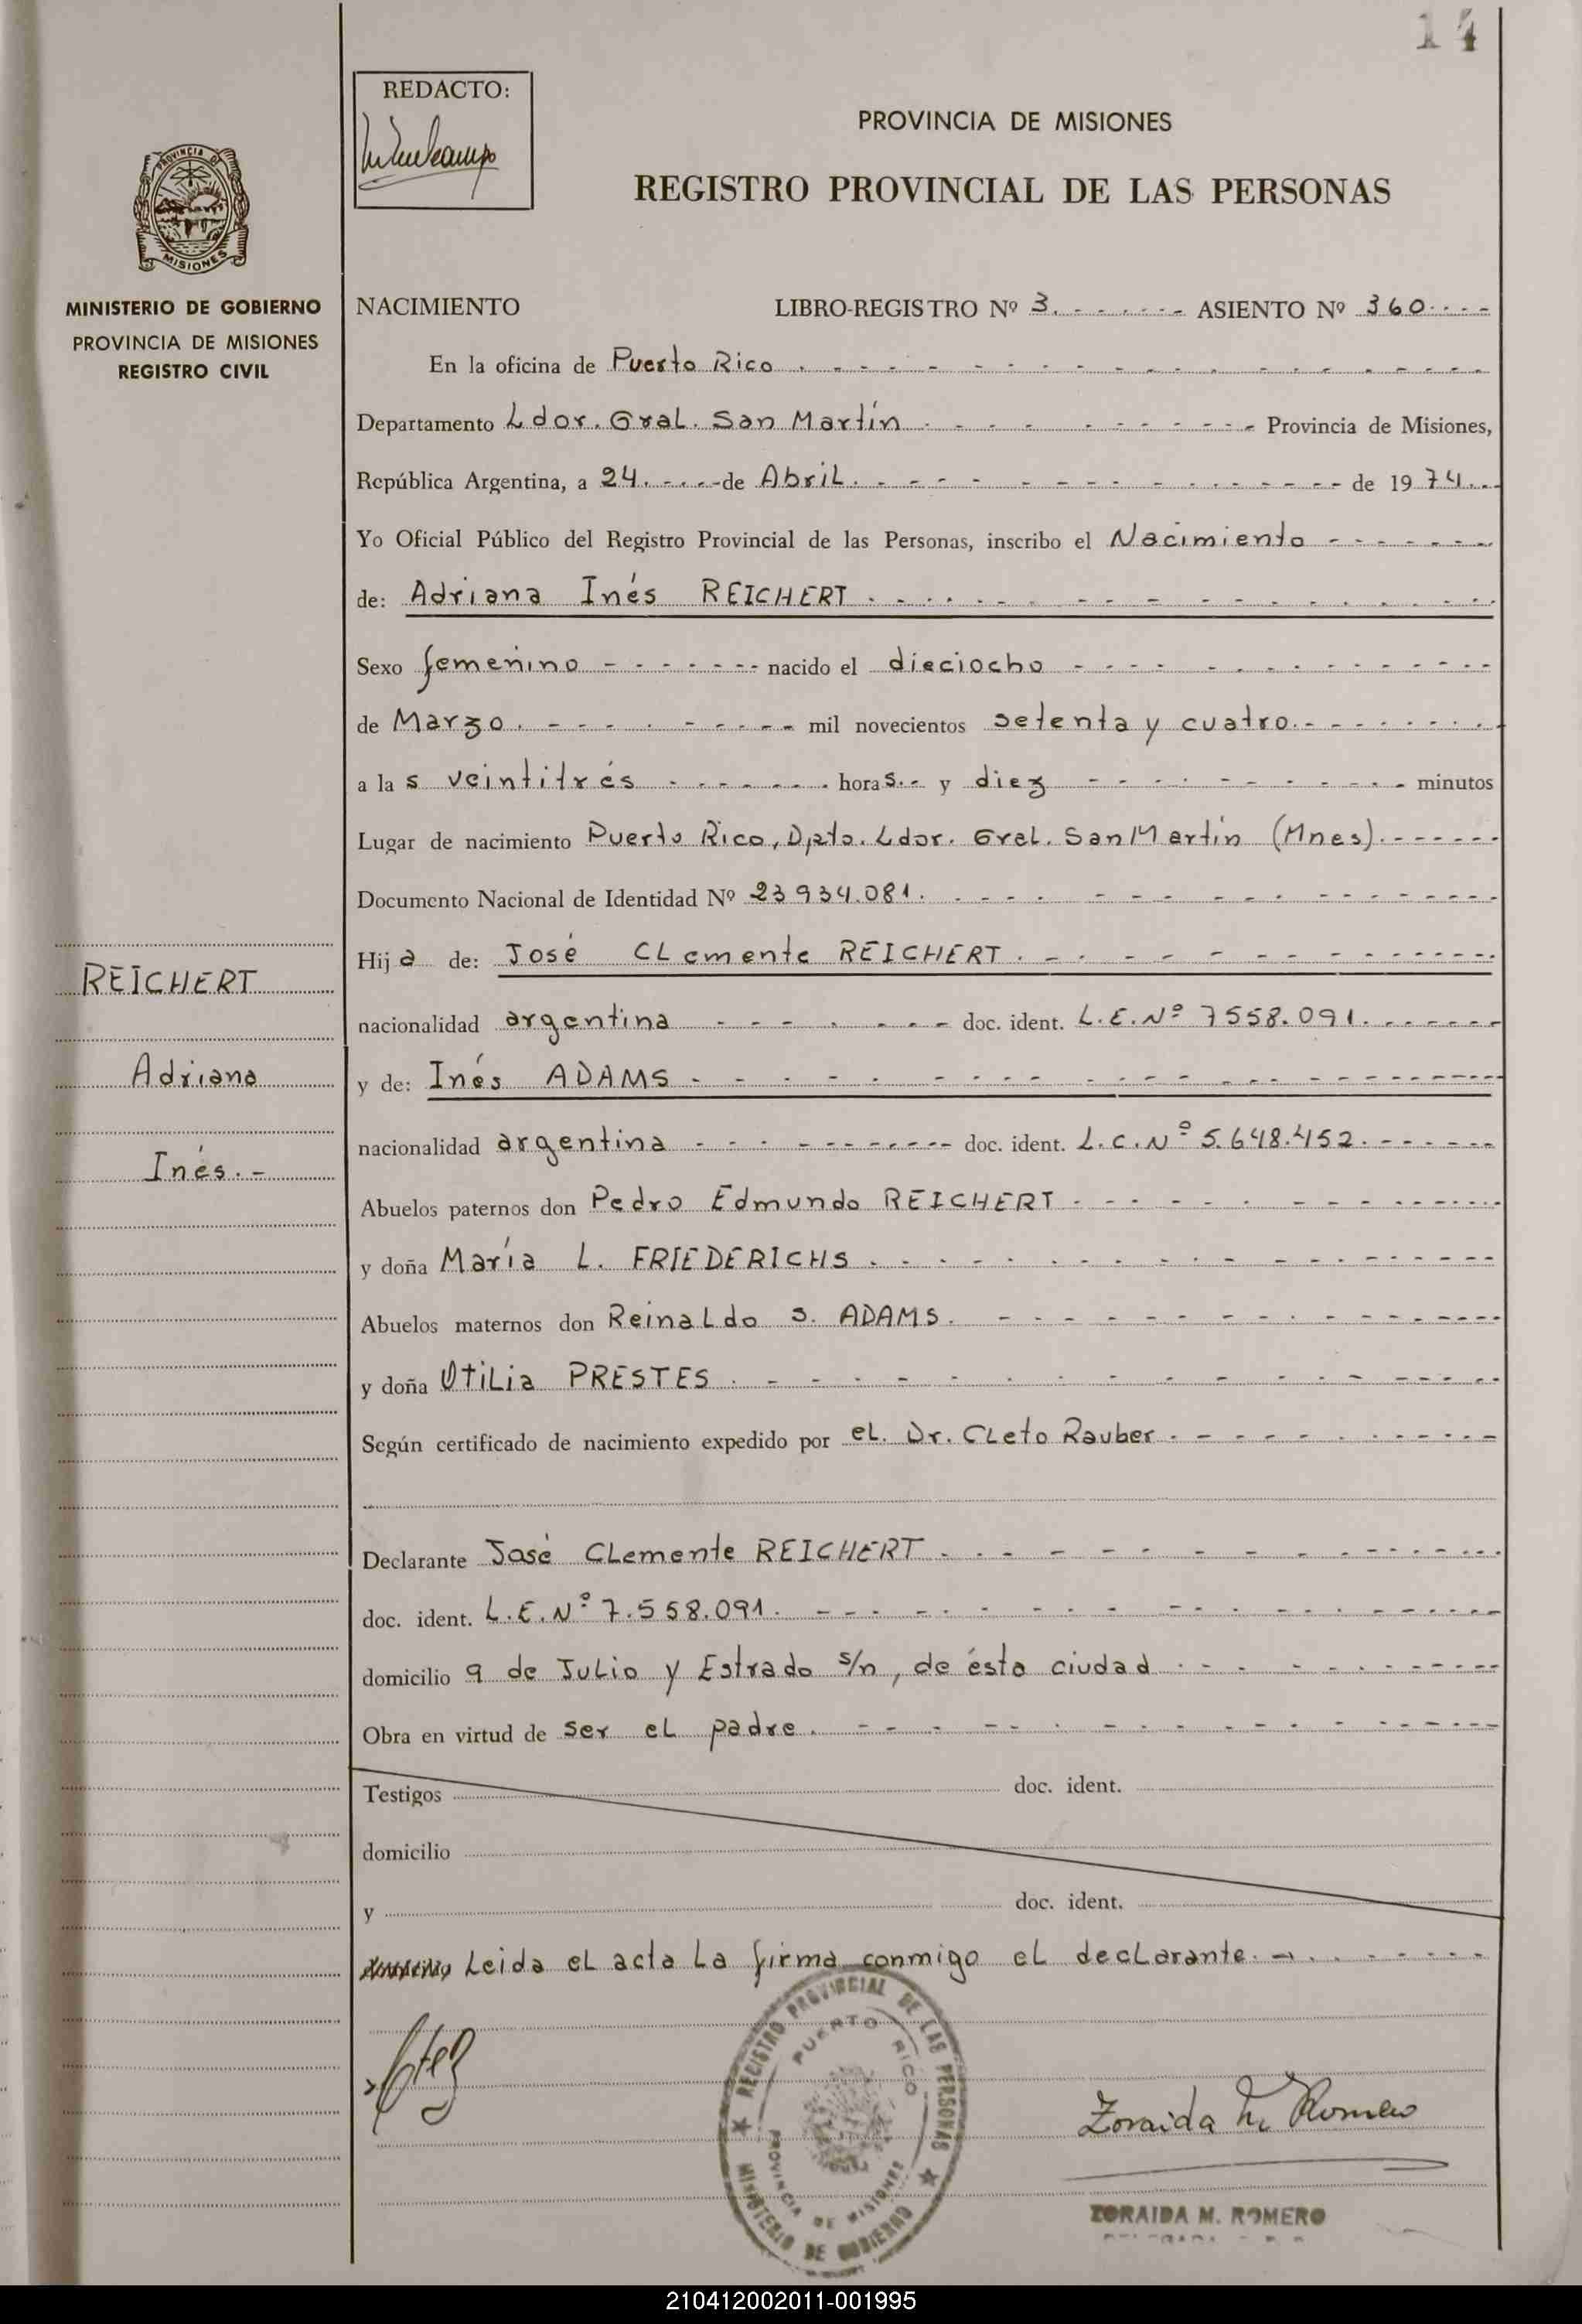 14
REDACTO:
PROVINCIA DE MISIONES
REGISTRO PROVINCIAL DE LAS PERSONAS
PROVINCIA DE
MISIONES
MINISTERIO DE GOBIERNO
PROVINCIA DE MISIONES
REGISTRO CIVIL
REICHERT
Adriana
Inés.-
NACIMIENTO LIBRO-REGISTRO Nº 3. ASIENTO Nº 360
En la oficina de Puerto Rico
Departamento Ldor. Gral. San Martín Provincia de Misiones,
República Argentina, a 24. de Abril. de 1974
Yo Oficial Público del Registro Provincial de las Personas, inscribo el Nacimiento
de: Adriana Inés REICHERT
Sexo femenino nacido el dieciocho
de Marzo. mil novecientos setenta y cuatro.
a las veintitrés horas y diez minutos
Lugar de nacimiento Puerto Rico, Dpto. Ldor. Gral. San Martín (Mnes)
Documento Nacional de Identidad Nº 23934.081.
Hija de: José Clemente REICHERT.
nacionalidad argentina doc. ident. L.E.Nº 7558.091.
y de: Inés ADAMS
nacionalidad argentina doc. ident. L.C.Nº 5.648.452.
Abuelos paternos don Pedro Edmundo REICHERT
y doña María L. FRIEDERICHS
Abuelos maternos don Reinaldo S. ADAMS.
y doña Otilia PRESTES
Según certificado de nacimiento expedido por el Dr. Cleto Rauber
Declarante José Clemente REICHERT
doc. ident. L.E.Nº 7.558.091.
domicilio 9 de Julio y Estrado s/n, de ésta ciudad
Obra en virtud de ser el padre.
Testigos doc. ident.
domicilio
y doc. ident.
Leida el acta la firma conmigo el declarante.
REGISTRO PROVINCIAL DE LAS PERSONAS
PUERTO RICO
PROVINCIA DE MISIONES
MINISTERIO DE GOBIERNO
Zoraida M. Romero
ZORAIDA M. ROMERO
210412002011-001995